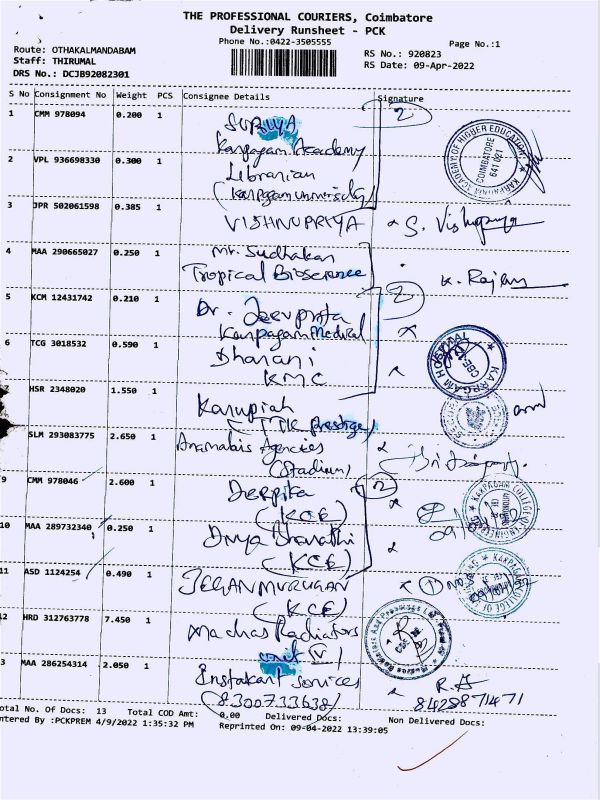 THE PROFESSIONAL COURIERS, Coimbatore
Delivery Runsheet - PCK
Phone No.:0422-3505555
Page No.:1
Route: OTHAKALMANDABAM
Staff: THIRUMAL
DRS No.: DCJB92082301
RS No.: 920823
RS Date: 09-Apr-2022
S No Consignment No Weight PCS Consignee Details Signature
1 CMM 978094 0.200 1 SUPRIYA 2
Karpagam Academy
2 VPL 936698330 0.300 1 Librarian
(Karpagam University)
KARPAGAM ACADEMY OF HIGHER EDUCATION
COIMBATORE
641 021
3 JPR 502061598 0.385 1 VISHNUPRIYA S. Vishnupriya
4 MAA 290665027 0.250 1 Mr. Sudhakar
Tropical Bioscience
5 KCM 12431742 0.210 1 Dr. 2
Karpagam Medical
6 TCG 3018532 0.590 1 Dharani
KMC
HSR 2348020 1.550 1 Karupiah
(TTK Prestige)
SLM 293083775 2.650 1 Agencies
(Stadium)
9 CMM 978046 2.600 1 Deepika 2
(KCE)
10 MAA 289732340 0.250 1 Divya Bharathi
(KCE)
11 ASD 1124254 0.490 1 JEGANMURUGAN 1
(KCE)
KARPAGAM COLLEGE OF ENGINEERING
2 HRD 312763778 7.450 1 Machas Radiators
unit (V)
3 MAA 286254314 2.050 1 Instakart Services
(8300733638)
8428871471
otal No. Of Docs: 13 Total COD Amt: 0.00 Delivered Docs: Non Delivered Docs:
ntered By :PCKPREM 4/9/2022 1:35:32 PM Reprinted On: 09-04-2022 13:39:05